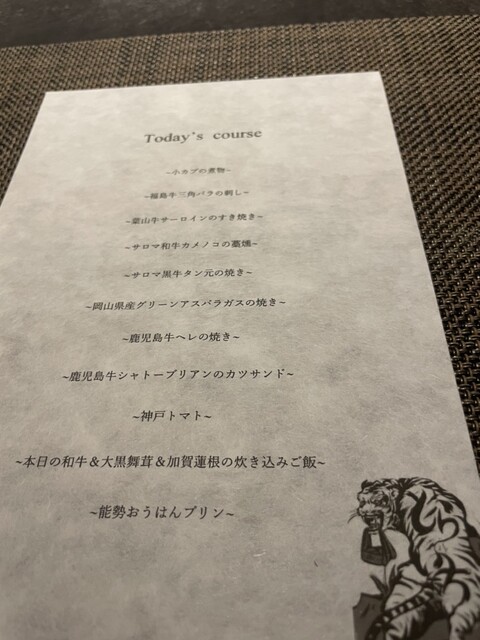 Today's course
~小カブの煮物~
~福島牛三角バラの刺し~
~葉山牛サーロインのすき焼き~
~サロマ和牛カメノコの藁燻~
~サロマ黒牛タン元の焼き~
~岡山県産グリーンアスパラガスの焼き~
~鹿児島牛ヘレの焼き~
~鹿児島牛シャトーブリアンのカツサンド~
~神戸トマト~
~本日の和牛＆大黒舞茸＆加賀蓮根の炊き込みご飯~
~能勢おうはんプリン~